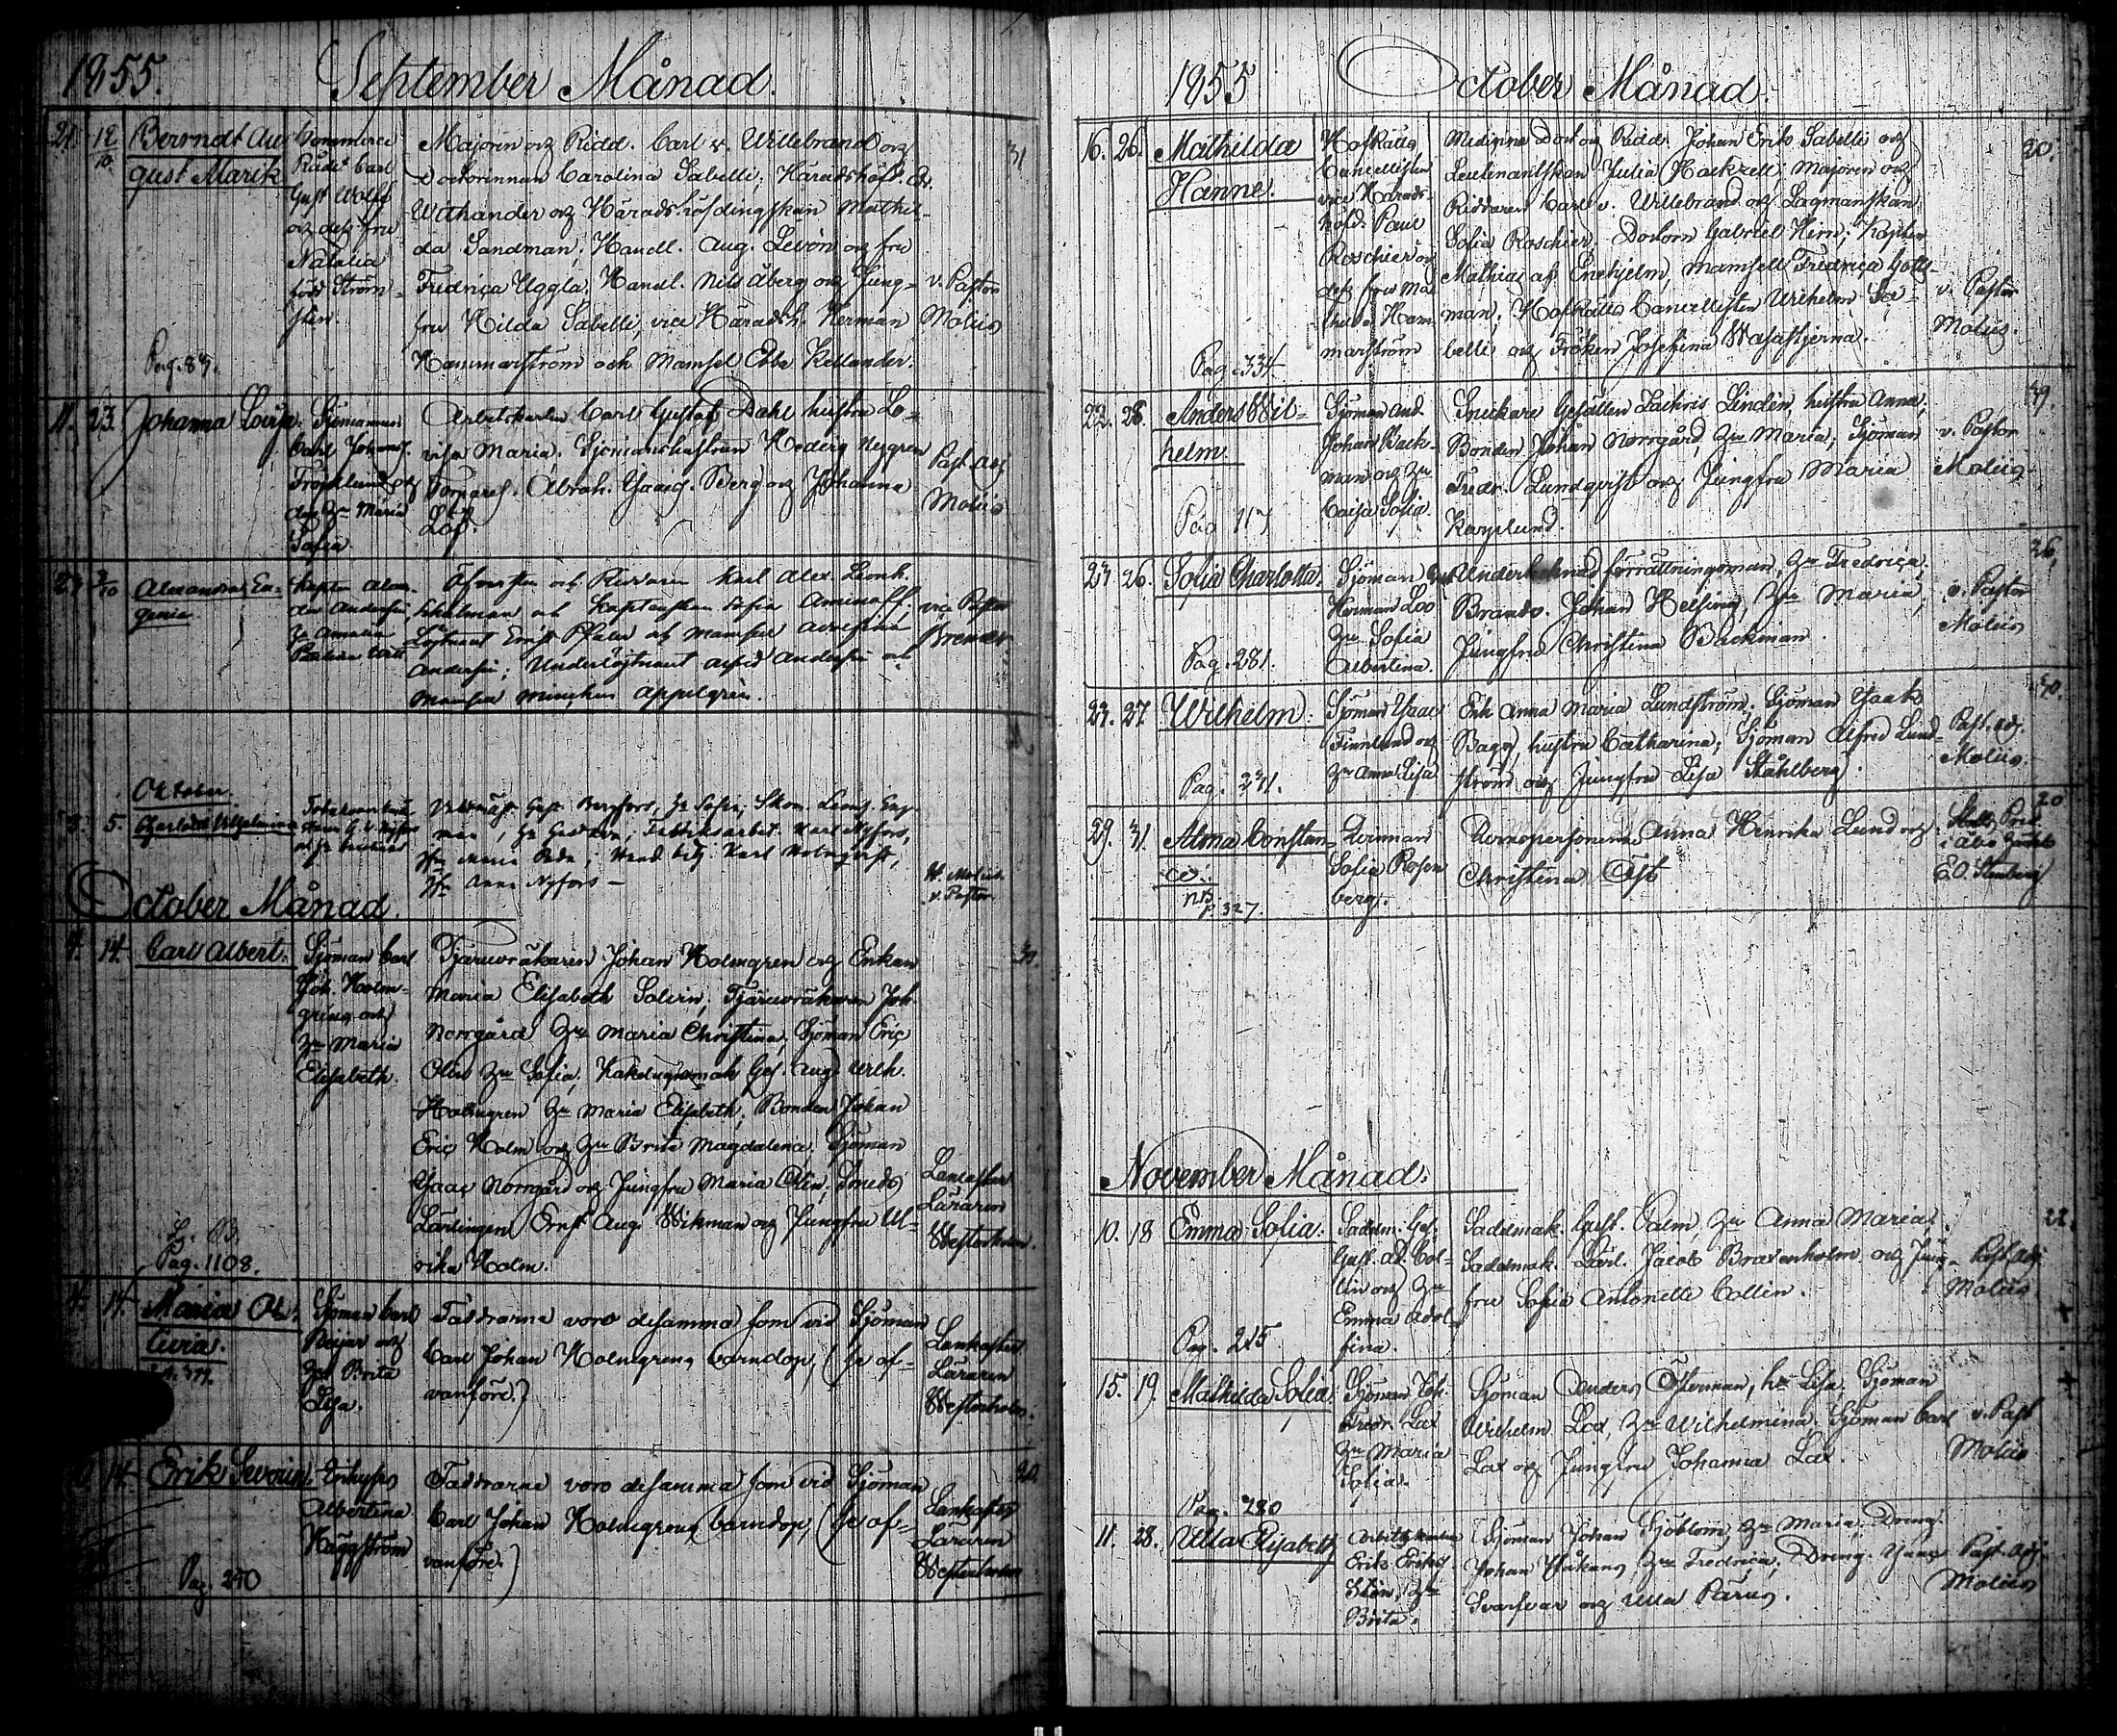 1855. September Månad.
21. 12/10. Berndt Au
gust Marik
Pag. 89.
Commerce
Rådt Carl
Gust Wolff
och dess fru
Natalia
född Ström
sten.
Majoren och Ridd. Carl v. Willebrand och
Doctorinnan Carolina Sabelli; Häradshöfd.
Withander och Häradshöfdingskan Mathil-
da Sandman; Handl. Aug. Levón och fru
Fredrica Uggla; Handl. Nils Åberg och Jung-
fru Hilda Sabelli, vice Häradsh. Herman
Hammarström och Mamsel Ebba Kellander.
v. Pastor
Moliis
31
11. 23. Johanna Lovisa.
Sjömannen
Carl Johans.
Frösslund och
dess Hu Maria
Sofia
Arbetskarlen Carl Gustaf Dahl hustru Lo-
visa Maria; Sjömanshustrun Hedvig Nygren
Torpares. Abrah. Isaacs. Berg och Johanna
Löf.
Past. Adj.
Moliis
27 2/10 Alexandra Eu-
genia
Kapten Alex-
der Andersin
Hu Amalia
Öfversten och Riddaren Karl Alex. Leonh.
och Kaptenskan Sofia Aminoff;
Löjtnant Ernst Pfaler och Mamsel Adolfina
Andersin; Underlöjtnant Alfrid Andersin och
Mamsel Minchen Appelgrén.
vice Pastor
Brenner
Oktober.
3. 5. Charlotta Wilhelmina
Gust. Bergfors, Hu Sofia; Skom. Leng. Eng-
man, Hu Gustava; Fabriksarbet. Karl Nyfors,
Jfr Maria; Karl Holmqvist,
Jfr Anna Nyfors –
H. Moliis
v. Pastor.
October Månad.
4. 14. Carl Albert.
Pag. 1108.
Sjöman Carl
Joh. Holm-
gren och
Hu Maria
Elisabeth.
Tjäruvräkaren Johan Holmgren och Enkan
Maria Elisabeth Solvin; Tjäruvräkaren Joh.
Norrgård Hu Maria Christina; Sjöman Eric
Olin Hu Sofia; Kakelugnsmak. Ges. Aug. Wilh.
Holmgren Hu Maria Elisabeth; Bonden Johan
Eric Holm och Hu Brita Magdalena; Sjöman
Isaac Norrgård och Jungfru Maria Olin; Smeds
Lärlingen Ernst Aug. Wikman och Jungfru Ul-
rika Holm.
Lankaster
Läraren
Westerholm.
30.
4. 14. Maria Oli
livia.
Sjöman Carl
Reijer och
Hu Brita
Lisa.
Faddrarne voro desamma som vid Sjöman
Carl Johan Holmgrens barndop, (se of-
vanföre.)
Lankaster
Läraren
Westerholm.
14. Erik Severin.
Pag. 290
Albertina
Häggström
Faddrarne voro desamma som vid Sjöman
Carl Johan Holmgrens barndop, (se of-
vanföre.)
Lankaster
Läraren
Westerholm
20.
1855 October Månad.
16. 26. Mathilda
Hanne.
Pag. 334
Hofrätts
Cancellisten
vice Härads-
höfd. Paul
Roschier och
dess fru Ma
thilda Ham-
marström
Medicine Doct. och Ridd. Johan Erik Sabelli och
Leutenantskan Julia Hackzell; Majoren och
Riddaren Carl v. Willebrand och Lagmanskan
Sofia Roschier; Doctorn Gabriel Hirn; Kapten
Mathias af Enehjelm, Mamsell Fredrica Gott-
man; Hofrätts Cancellisten Wilhelm Sa-
belli och Fröken Josefina Wasastjerna.
v. Pastor
Moliis.
30.
22. 28. Anders Wil-
helm
Pag 117
Sjöman And
Johan Back-
man och Hu
Caisa Sofia.
Snickare Gesällen Zachris Lindén, hustru Anna;
Bonden Johan Norrgård, Hu Maria; Sjöman
Fredr. Lundqvist och Jungfru Maria
Karplund.
v. Pastor
Moliis
39.
24. 26. Sofia Charlotta.
Pag. 281.
Sjöman
Herman Loo
Hu Sofia
Albertina.
förrättningsman, Hu Fredrica;
Johan Helsing, Hu Maria;
Jungfru Christina Backman.
v. Pastor
Moliis
26.
24. 27. Wilhelm.
Pag. 331.
Sjöman Isaac
Finnlund och
Hu Anna Lisa
Enk. Anna Maria Lundström; Sjöman Isaak
Bagg, hustru Catharina; Sjöman Alfred Lund-
ström och Jungfru Lisa Ståhlberg.
Past. adj.
Moliis.
40.
29. 31. Alma Constan-
ce.
NB
p. 327.
Qvinnan
Sofia Rosen
berg.
Qvinspersonerna Anna Henrika Lund och
Christina Öst
E.O. Stenberg
20
November Månad.
10. 18 Emma Sofia.
Pag. 215
Sadelm. Ges.
Gust. Ad. Col-
lin och Hu
Emma Adol
fina.
Sadelmak. Gust. Palm, Hu Anna Maria;
Sadelmak. Lärl. Jacob Braxenholm och Jung-
fru Sofia Antonette Collin.
Past. adj.
Moliis
22.
15. 19. Mathilda Sofia.
Pag. 280
Sjöman Joh.
Fredr. Lax
Hu Maria
Sofia.
Sjöman Anders Österman, hu Lisa; Sjöman
Wilhelm Lax, Hu Wilhelmina; Sjöman Carl
Lax och Jungfru Johanna Lax.
v. Past
Moliis
11. 28. Ulla Elisabeth
Arbetskarlen
Erik Eriks.
Hu
Brita.
Sjöman Johan Sjöblom, Hu Maria; Dreng.
Johan Håkans, Hu Fredrica; Dreng. Isaac
Svarfvar och Ulla Parus.
Past. adj.
Moliis